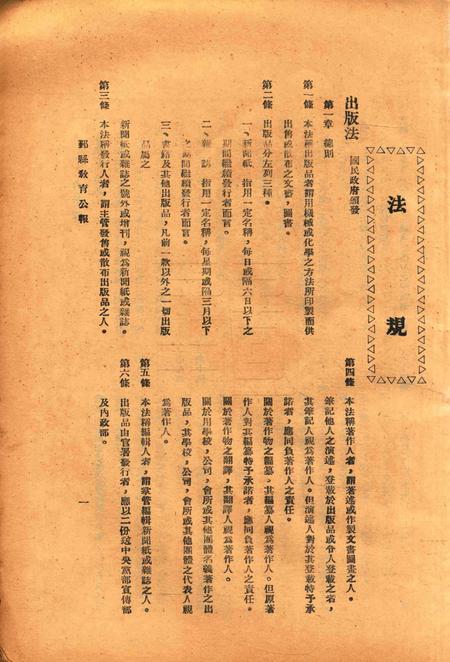 法規
出版法
國民政府頒發
第一章 總則
第一條 本法稱出版品者謂用機械或化學之方法所印製而供
出售或散布之文書，圖畫。
第二條 出版品分左列三種。
一、新聞紙 指用一定名稱，每日或隔六日以下之
期間繼續發行者而言。
二、雜誌 指用一定名稱，每星期或隔三月以下
之期間繼續發行者而言。
三、書籍及其他出版品，凡前一款以外之一切出版
品屬之
新聞紙或雜誌之號外或增刊，視爲新聞紙或雜誌。
第三條 本法稱發行人者，謂主管發售或散布出版品之人。
第四條 本法稱著作人者，謂著述或作製文書圖畫之人。
筆記他人之演述，登載於出版品或令人登載之者，
其筆記人視爲著作人。但演述人對於其登載特予承
諾者，應同負著作人之責任。
關於著作物之編纂，其編纂人視爲著作人。但原著
作人對其編纂特予承諾者，應同負著作人之責任。
關於著作物之翻譯，其翻譯人視爲著作人。
關於用學校，公司，會所或其他團體名義著作之出
版品，其學校，公司，會所或其他團體之代表人視
爲著作人。
第五條 本法稱編輯人者，謂掌管編輯新聞紙或雜誌之人。
第六條 出版品由官署發行者，應以二份送中央黨部宣傳部
及內政部。
鄞縣教育公報
一